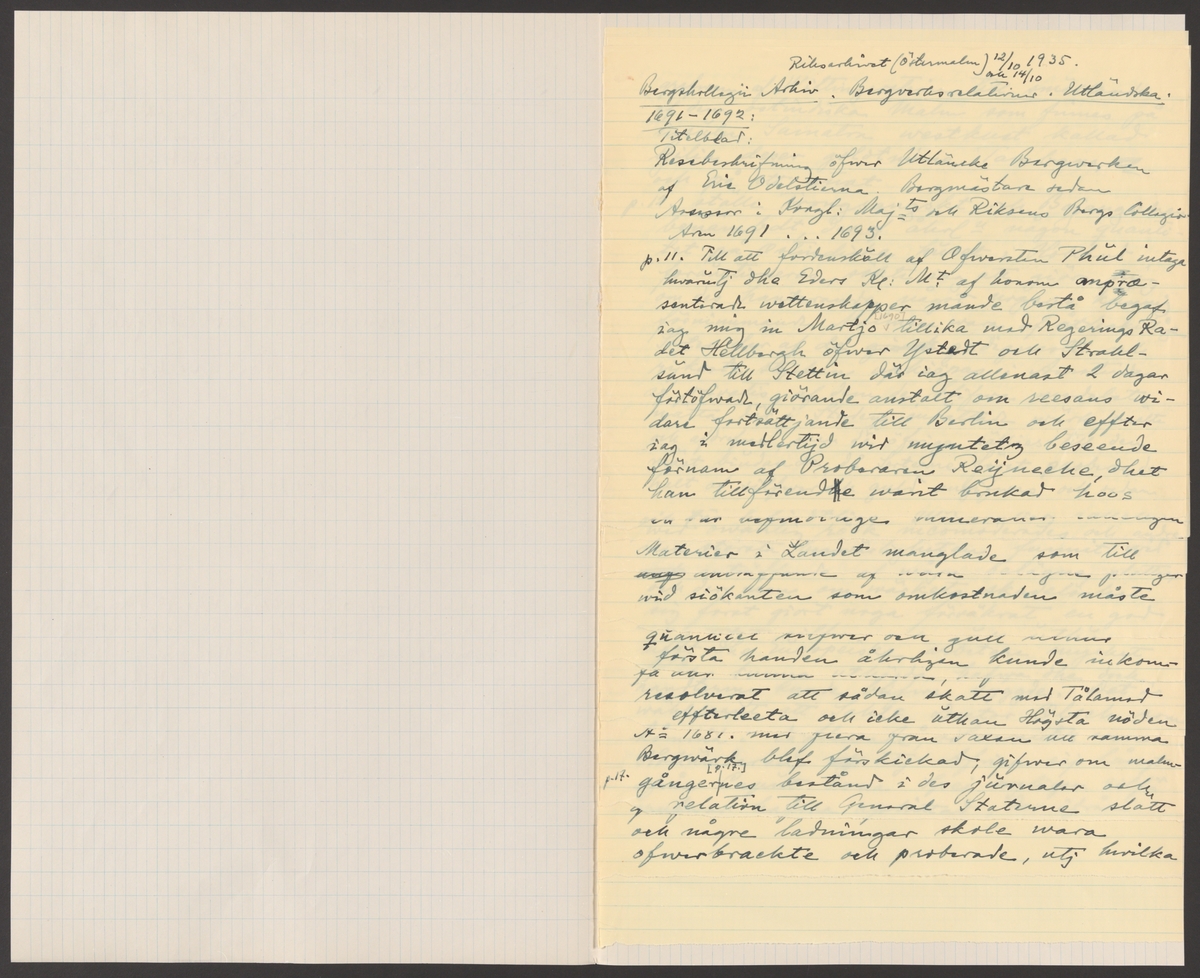 Riksarkivet (Östermalm) 12/10 1935.
och 14/10
Bergskollegii Arkiv. Bergverksrelationer. Utländska.
1691-1692:
Titelblad:
Resebeskrifning öfwer Utländske Bergwerken
af Eric Odelstierna. Bergmästare sedan
Assessor i Kongl: Maj:ts och Riksens Bergs Collegio
Åren 1691 ... 1693.
p. 11. Till att fordenskÿll af Öfwersten Phül intaga
hwarutj dhe Eders Kl: M:t af honom
senterade wettenskapper månde bestå begaf
iag mig in Martjo [1690] tillika med Regerings Ra-
det Hellbergh öfwer Ÿstedt och Strahl-
sund till Stettin där iag allenast 2 dagar
förtöfwade, giörande anstalt om reesans wi-
dare fortsättjande till Berlin och effter
iag i medlertijd wid myntetz beseende
förnam af Proberaren Reijnecke, dhet
han tillförende warit brukad hoos
Materier i Landet manglade som till
wid siökanten som omkostnaden måste
första handen åhrligen kunde inkom-
resolverat att sådan skatt med Tålamod
effterleeta och icke uthan Högsta nöden
A:o 1681. med flera från Saxen till samma
Bergwärk blef förskickad, gifwer om malm-
p. 17. gångernes [p. 17.] bestånd i des jurnaler och
relation till General Staterne slått
och någre ladningar skole wara
öfwerbrackte och proberade, utj hwilka